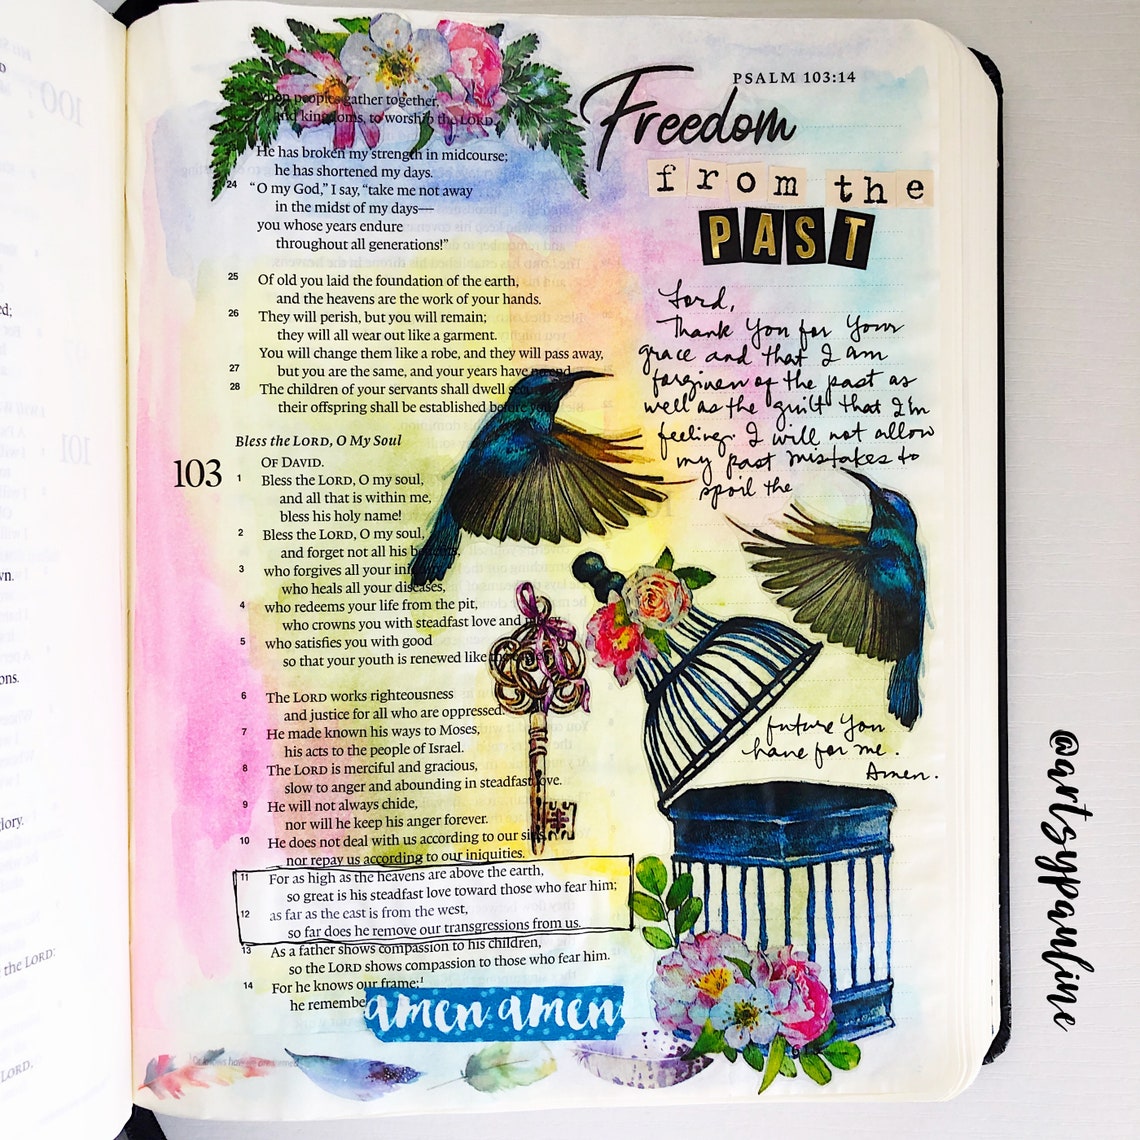 PSALM 103:14
Freedom
from the
PAST
peoples gather together,
and kingdoms, to worship the LORD.
He has broken my strength in midcourse;
he has shortened my days.
24 “O my God,” I say, “take me not away
in the midst of my days—
you whose years endure
throughout all generations!”
25 Of old you laid the foundation of the earth,
and the heavens are the work of your hands.
26 They will perish, but you will remain;
they will all wear out like a garment.
You will change them like a robe, and they will pass away,
27 but you are the same, and your years have no end.
28 The children of your servants shall dwell
their offspring shall be established before you.
Bless the LORD, O My Soul
OF DAVID.
103 1 Bless the LORD, O my soul,
and all that is within me,
bless his holy name!
2 Bless the LORD, O my soul,
and forget not all his benefits,
3 who forgives all your iniquity,
who heals all your diseases,
4 who redeems your life from the pit,
who crowns you with steadfast love and mercy,
5 who satisfies you with good
so that your youth is renewed like the
6 The LORD works righteousness
and justice for all who are oppressed.
7 He made known his ways to Moses,
his acts to the people of Israel.
8 The LORD is merciful and gracious,
slow to anger and abounding in steadfast love.
9 He will not always chide,
nor will he keep his anger forever.
10 He does not deal with us according to our sins,
nor repay us according to our iniquities.
11 For as high as the heavens are above the earth,
so great is his steadfast love toward those who fear him;
12 as far as the east is from the west,
so far does he remove our transgressions from us.
13 As a father shows compassion to his children,
so the LORD shows compassion to those who fear him.
14 For he knows our frame;1
he remembe
amen amen
Lord,
Thank You for Your
grace and that I am
forgiven of the past as
well as the guilt that I'm
feeling. I will not allow
my past mistakes to
spoil the
future You
have for me.
Amen.
@artsypauline